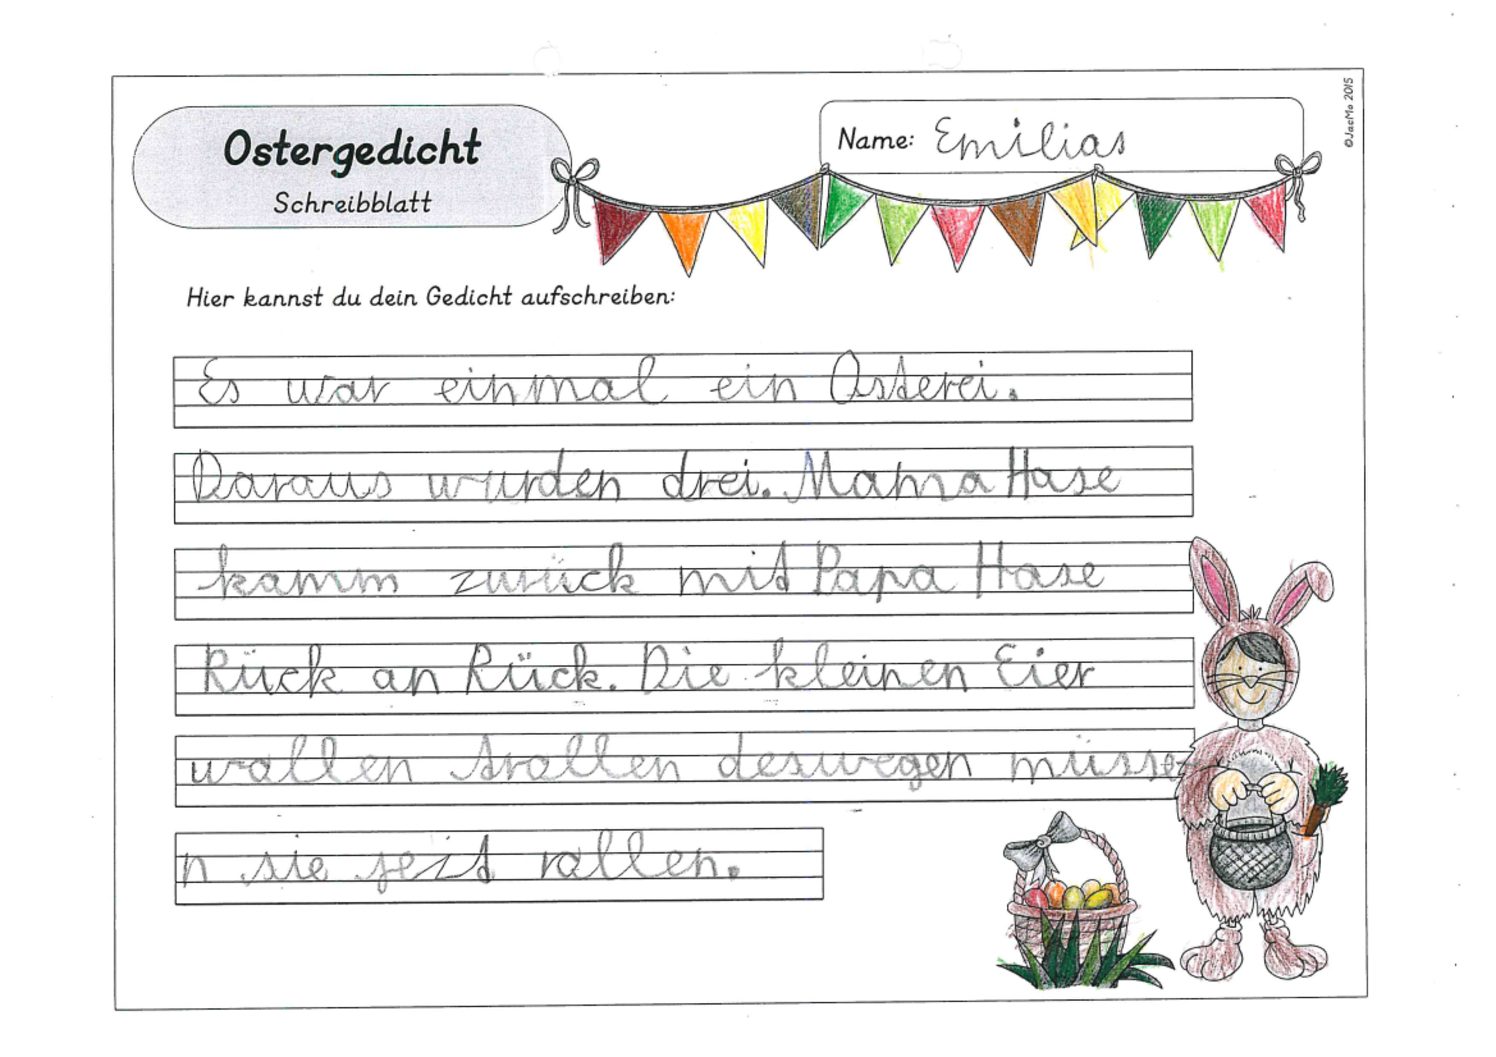 Ostergedicht
Schreibblatt
Name: Emilias
©JacMo 2015
Hier kannst du dein Gedicht aufschreiben:
Es war einmal ein Osterei.
Daraus wurden drei. Mama Hase
kamm zurück mit Papa Hase
Rück an Rück. Die kleinen Eier
wollen trollen deswegen müsse
n sie jetzt rollen.